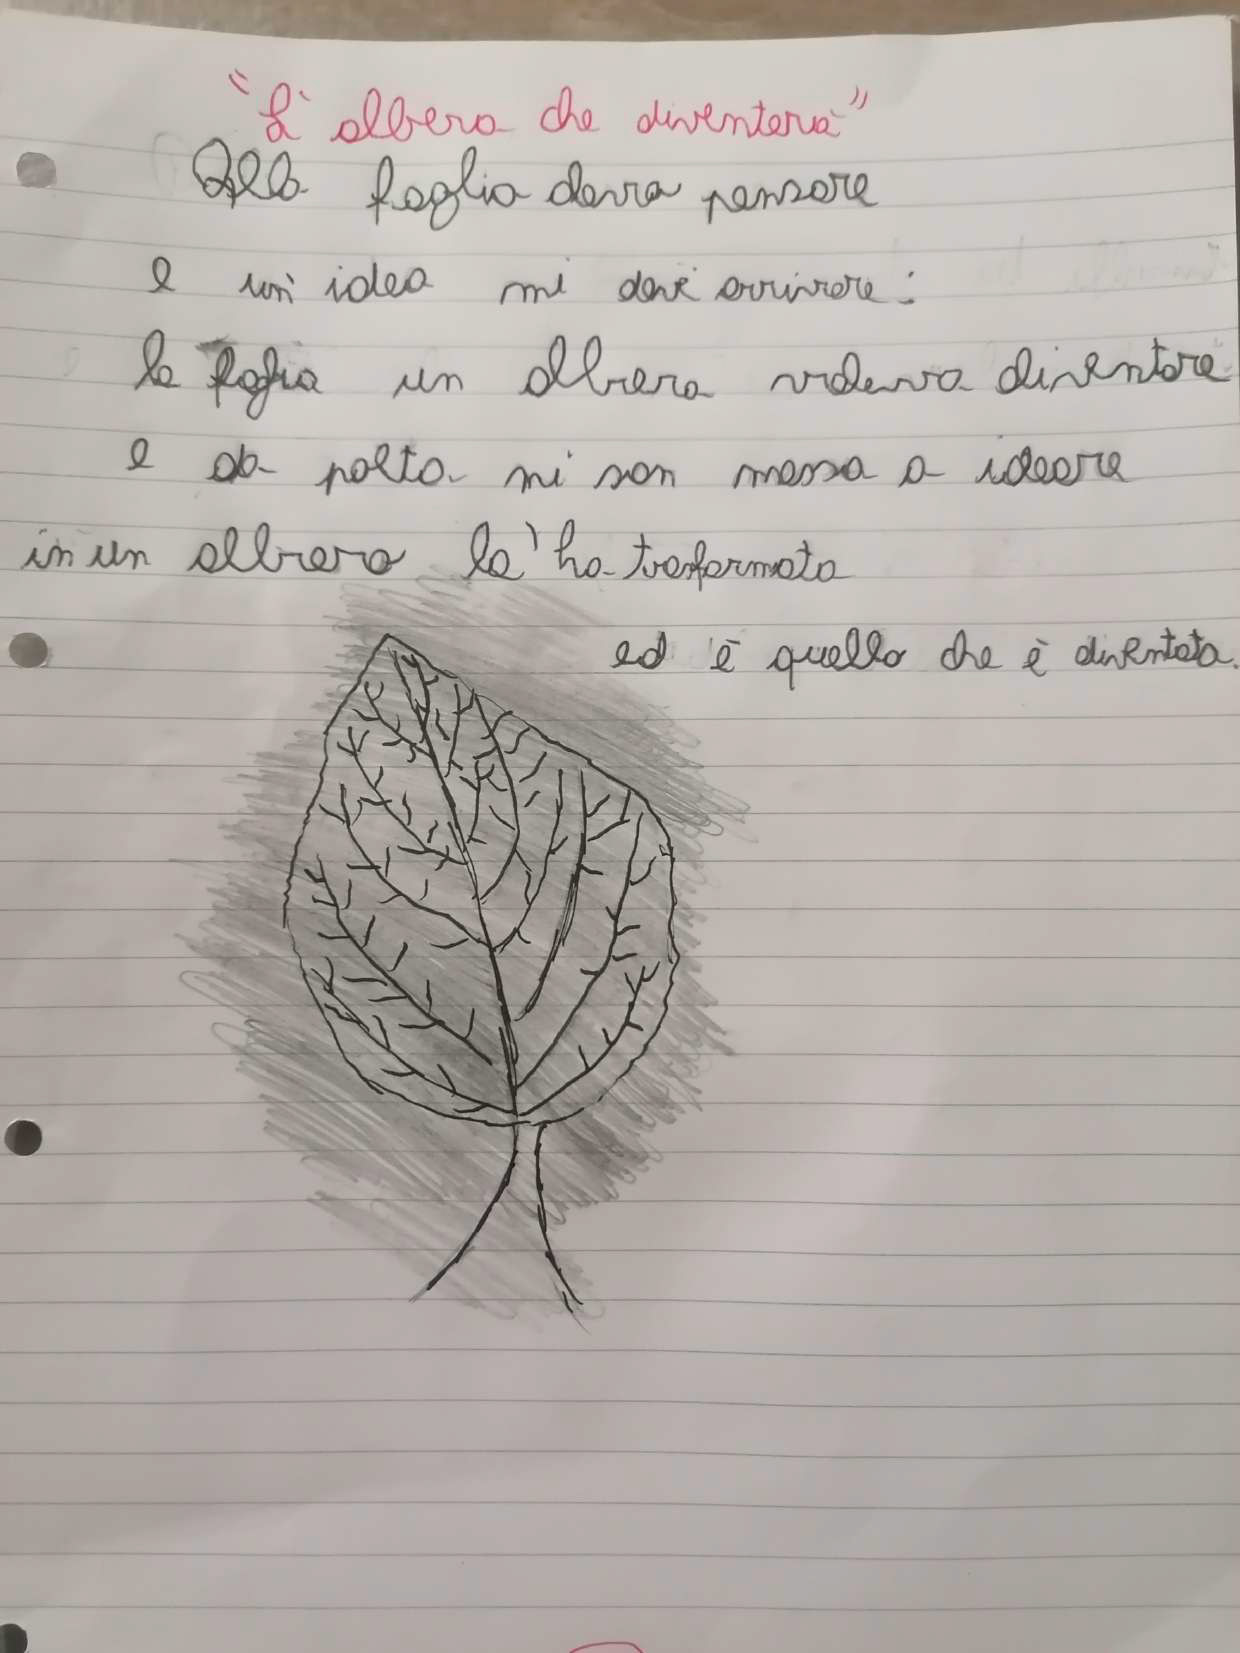 "L'albero che diventerà"
Alla foglia devra pensare
e un'idea mi deve arrivare:
la foglia un albrero voleva diventare
e da polto mi son messa a ideare
in un albrero la'ho trasformata
ed è quello che è diventata.